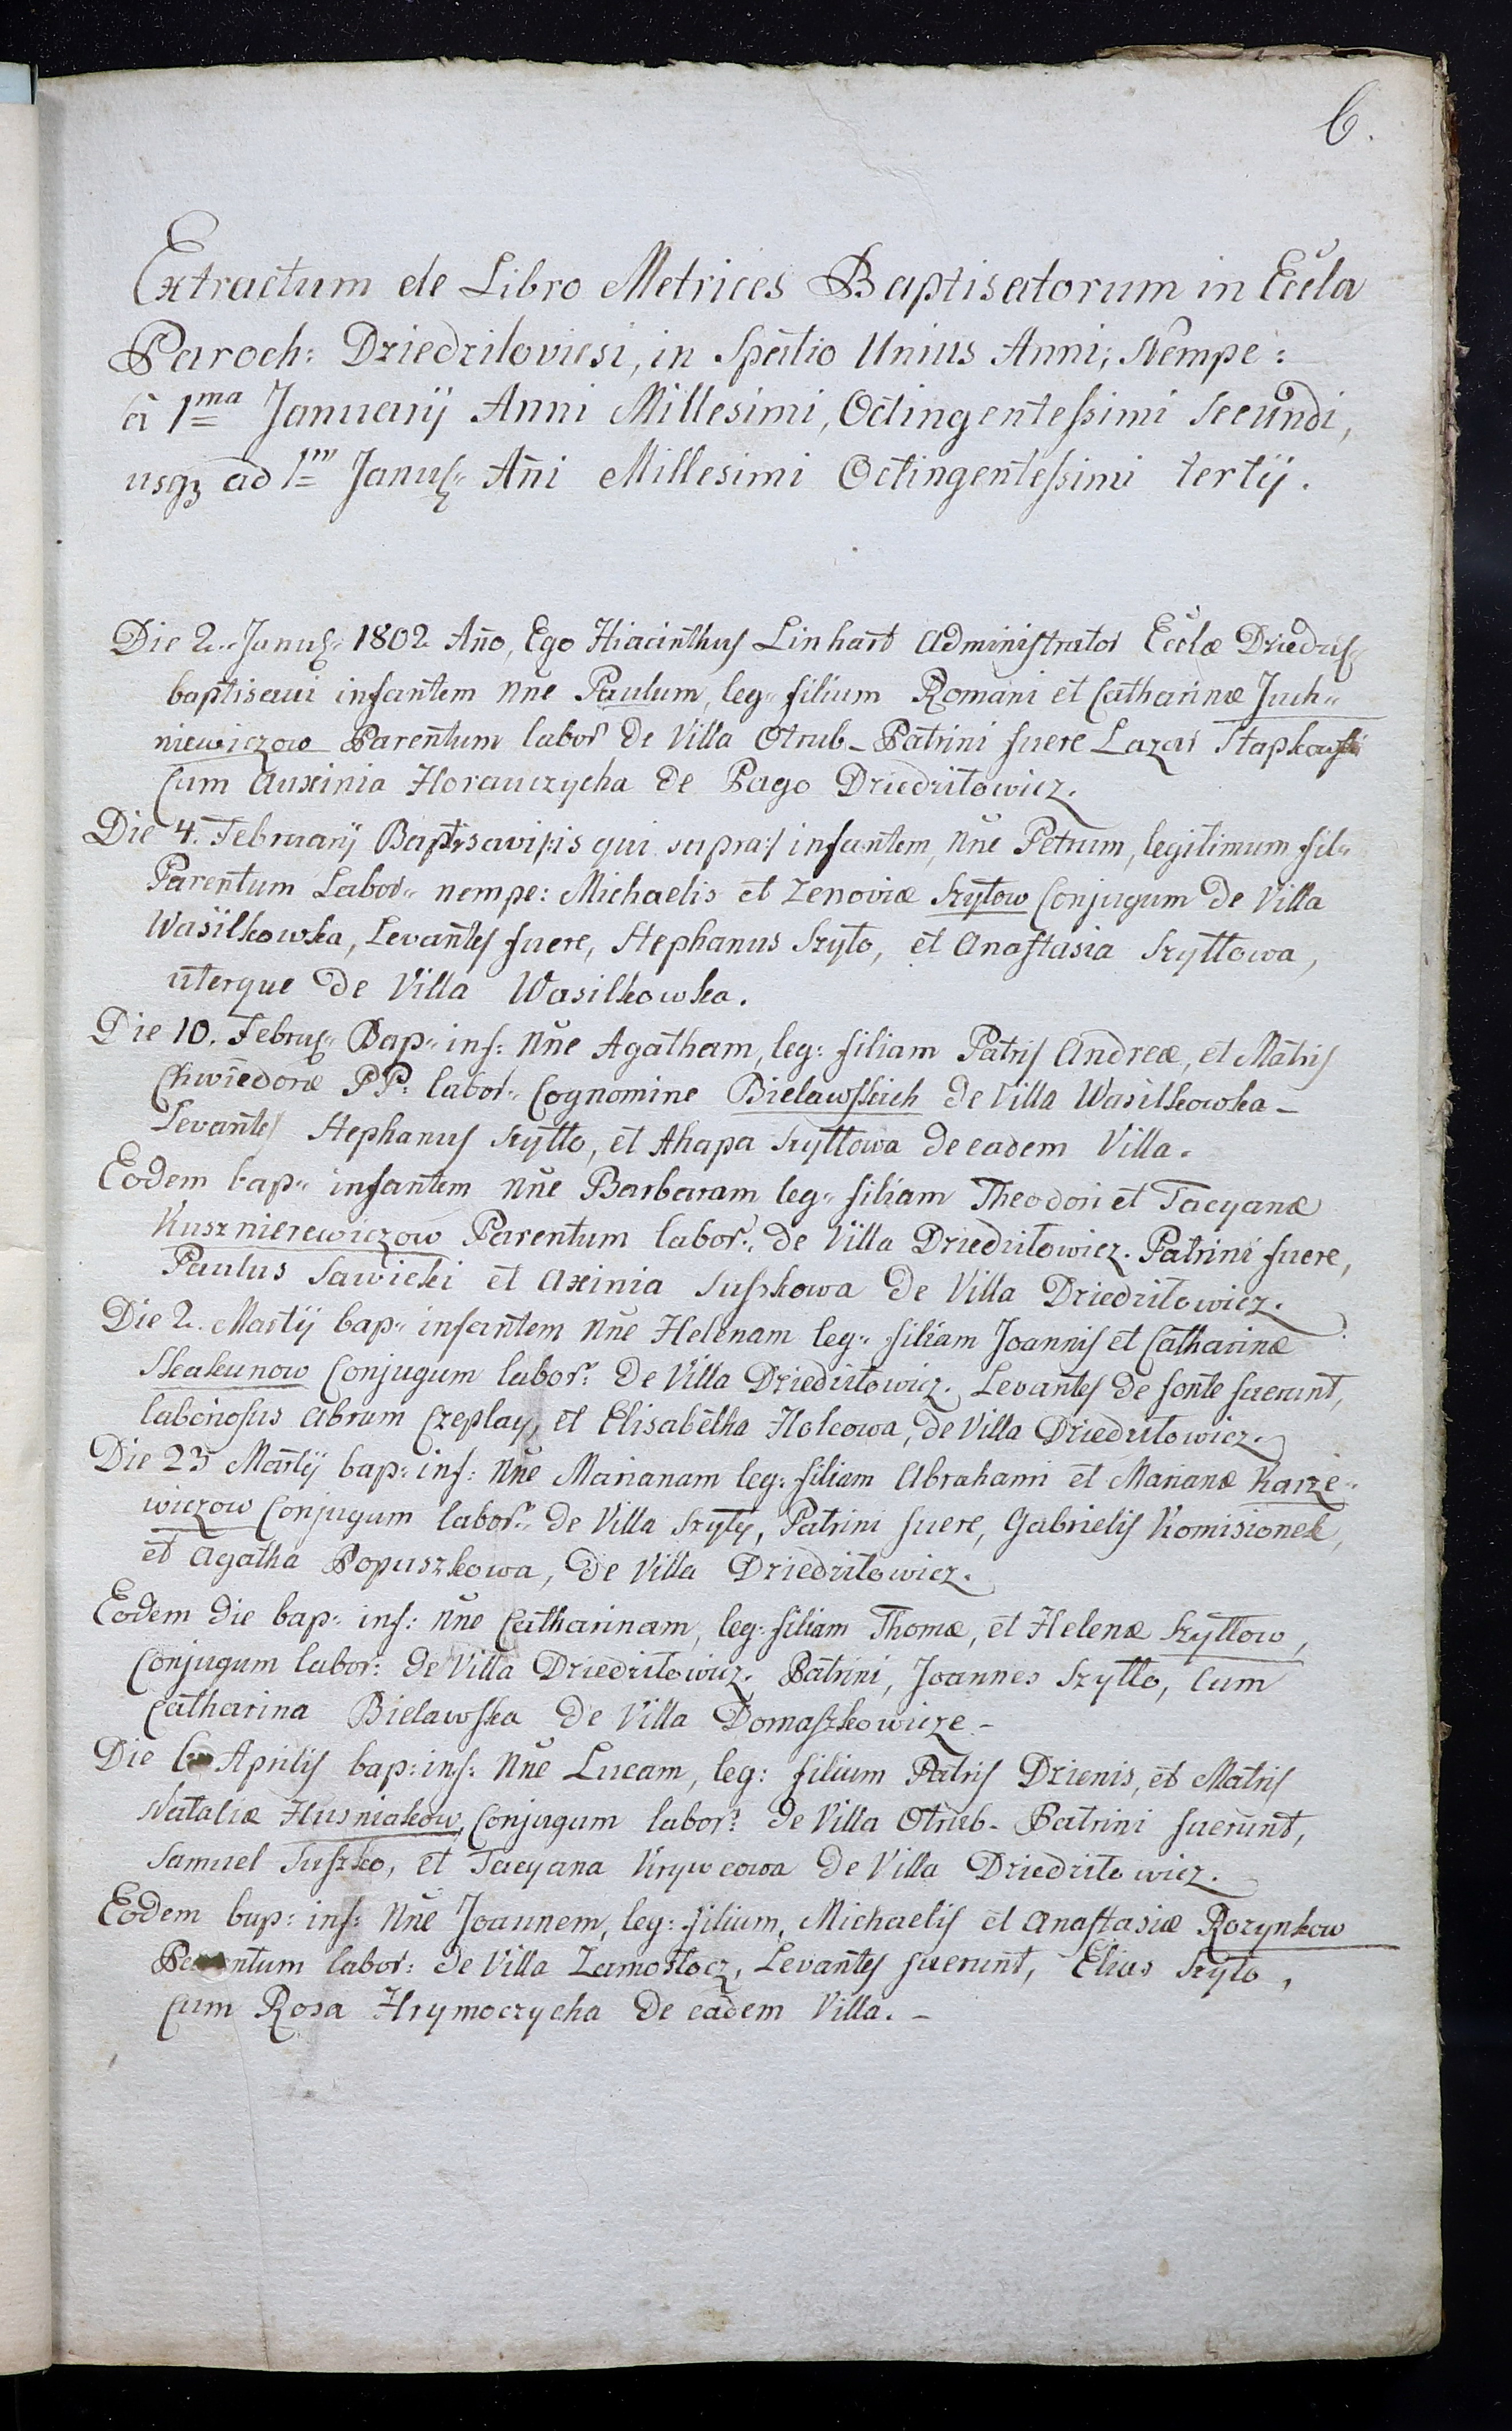 6.
Extractum de Libro Metrices Baptisatorum in Eccla
Paroch: Dziedziloviesi, in Spatio Unius Anni; Nempe:
à 1ma Januarij Anni Millesimi, Octingentessimi Secundi,
usq3 ad 1m Janu: Añi Millesimi Octingentessimi tertij.
Die 2. Janu: 1802 Año, Ego Hiacinthus Linhart Administrator Eccläe Dziedzi:
baptisavi infantem Nñe Paulum, leg: filium Romani et Catharinæ Juch=
niewiczow Parentum labor: de Villa Otrub – Patrini fuere Lazar Stapkowski
Cum Auxinia Horauczycha de Pago Dziedziłowicz.
Die 4. Februarij Baptisavi /:is qui supra:/ infantem, Nñe Petrum, legitimum fil=
Parentum Labor: nempe: Michaelis et Zenoviæ Szyłow Conjugum de Villa
Wasilkowka, Levantes fuere, Stephanus Szyło, et Anastasia Szyłłowa,
uterque de Villa Wasilkowka.
Die 10. Febru: Bap: inf: Nñe Agatham, leg: filiam Patris Andreæ, et Matris
Chwiedoræ PP: labor: Cognomine Bielawskich de Villa Wasilkowka –
Levantes Stephanus Szyłło, et Ahapa Szyłłowa de eadem Villa.
Eodem bap: infantem Nñe Barbaram leg: filiam Theodori et Tacyanæ
Kusznierewiczow Parentum labor: de Villa Dziedziłowicz. Patrini fuere,
Paulus Sawicki et Axinia Suszkowa de Villa Dziedziłowicz.
Die 2. Martij bap: infantem Nñe Helenam leg: filiam Joannis et Catharinæ
Skakunow Conjugum labor: de Villa Dziedziłowicz. Levantes de fonte fuerunt,
laboriosus Abram Czeplay, et Elisabetha Holcowa, de Villa Dziedziłowicz.
Die 23 Martij bap: inf: Nñe Marianam leg: filiam Abrahami et Marianæ Karze=
wiczow Conjugum labor: de Villa Szyły, Patrini fuere, Gabrielis Komisionek,
et Agatha Popuszkowa, de Villa Dziedziłowicz.
Eodem die bap: inf: Nñe Catharinam, leg: filiam Thomæ, et Helenæ Szyłłow,
Conjugum labor: de Villa Dziedziłowicz. Patrini, Joannes Szyłło, Cum
Catharina Bielawska de Villa Domaszkowicze –
Die 6 Aprilis bap: inf: Nñe Lucam, leg: filium Patris Dzienis, et Matris
Nataliæ Husniakow, Conjugum labor: de Villa Otrub – Patrini fuerunt,
Samuel Suszko, et Tacyana Krywcowa de Villa Dziedziłowicz.
Eodem bap: inf: Nñe Joannem, leg: filium, Michaelis et Anastasiæ Rozynkow
Parentum labor: de Villa Zamostocz, Levantes fuerunt, Elias Szyło,
Cum Rosa Hrymoczycha de eadem Villa. –